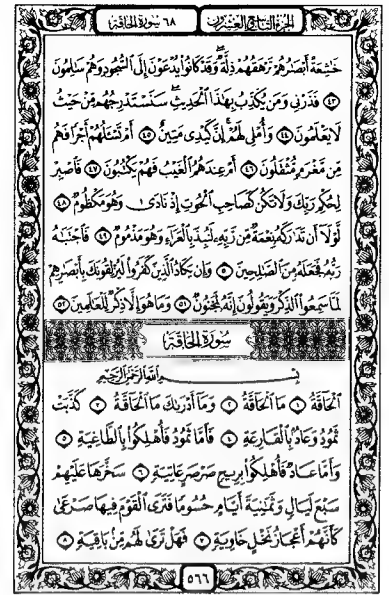 الجزء التاسع والعشرون
٦٨ سورة الحاقة
خَٰشِعَةً أَبْصَٰرُهُمْ تَرْهَقُهُمْ ذِلَّةٌ وَقَدْ كَانُوا۟ يُدْعَوْنَ إِلَى ٱلسُّجُودِ وَهُمْ سَٰلِمُونَ
٤٣ فَذَرْنِى وَمَن يُكَذِّبُ بِهَٰذَا ٱلْحَدِيثِ سَنَسْتَدْرِجُهُم مِّنْ حَيْثُ
لَا يَعْلَمُونَ ٤٤ وَأُمْلِى لَهُمْ إِنَّ كَيْدِى مَتِينٌ ٤٥ أَمْ تَسْـَٔلُهُمْ أَجْرًا فَهُم
مِّن مَّغْرَمٍ مُّثْقَلُونَ ٤٦ أَمْ عِندَهُمُ ٱلْغَيْبُ فَهُمْ يَكْتُبُونَ ٤٧ فَٱصْبِرْ
لِحُكْمِ رَبِّكَ وَلَا تَكُن كَصَاحِبِ ٱلْحُوتِ إِذْ نَادَىٰ وَهُوَ مَكْظُومٌ ٤٨
لَّوْلَا أَن تَدَٰرَكَهُۥ نِعْمَةٌ مِّن رَّبِّهِۦ لَنُبِذَ بِٱلْعَرَاءِ وَهُوَ مَذْمُومٌ ٤٩ فَٱجْتَبَٰهُ
رَبُّهُۥ فَجَعَلَهُۥ مِنَ ٱلصَّٰلِحِينَ ٥٠ وَإِن يَكَادُ ٱلَّذِينَ كَفَرُوا۟ لَيُزْلِقُونَكَ بِأَبْصَٰرِهِمْ
لَمَّا سَمِعُوا۟ ٱلذِّكْرَ وَيَقُولُونَ إِنَّهُۥ لَمَجْنُونٌ ٥١ وَمَا هُوَ إِلَّا ذِكْرٌ لِّلْعَٰلَمِينَ ٥٢
سورة الحاقة
بِسْمِ ٱللَّهِ ٱلرَّحْمَٰنِ ٱلرَّحِيمِ
ٱلْحَاقَّةُ ١ مَا ٱلْحَاقَّةُ ٢ وَمَا أَدْرَىٰكَ مَا ٱلْحَاقَّةُ ٣ كَذَّبَتْ
ثَمُودُ وَعَادٌ بِٱلْقَارِعَةِ ٤ فَأَمَّا ثَمُودُ فَأُهْلِكُوا۟ بِٱلطَّاغِيَةِ ٥
وَأَمَّا عَادٌ فَأُهْلِكُوا۟ بِرِيحٍ صَرْصَرٍ عَاتِيَةٍ ٦ سَخَّرَهَا عَلَيْهِمْ
سَبْعَ لَيَالٍ وَثَمَٰنِيَةَ أَيَّامٍ حُسُومًا فَتَرَى ٱلْقَوْمَ فِيهَا صَرْعَىٰ
كَأَنَّهُمْ أَعْجَازُ نَخْلٍ خَاوِيَةٍ ٧ فَهَلْ تَرَىٰ لَهُم مِّن بَاقِيَةٍ ٨
٥٦٦